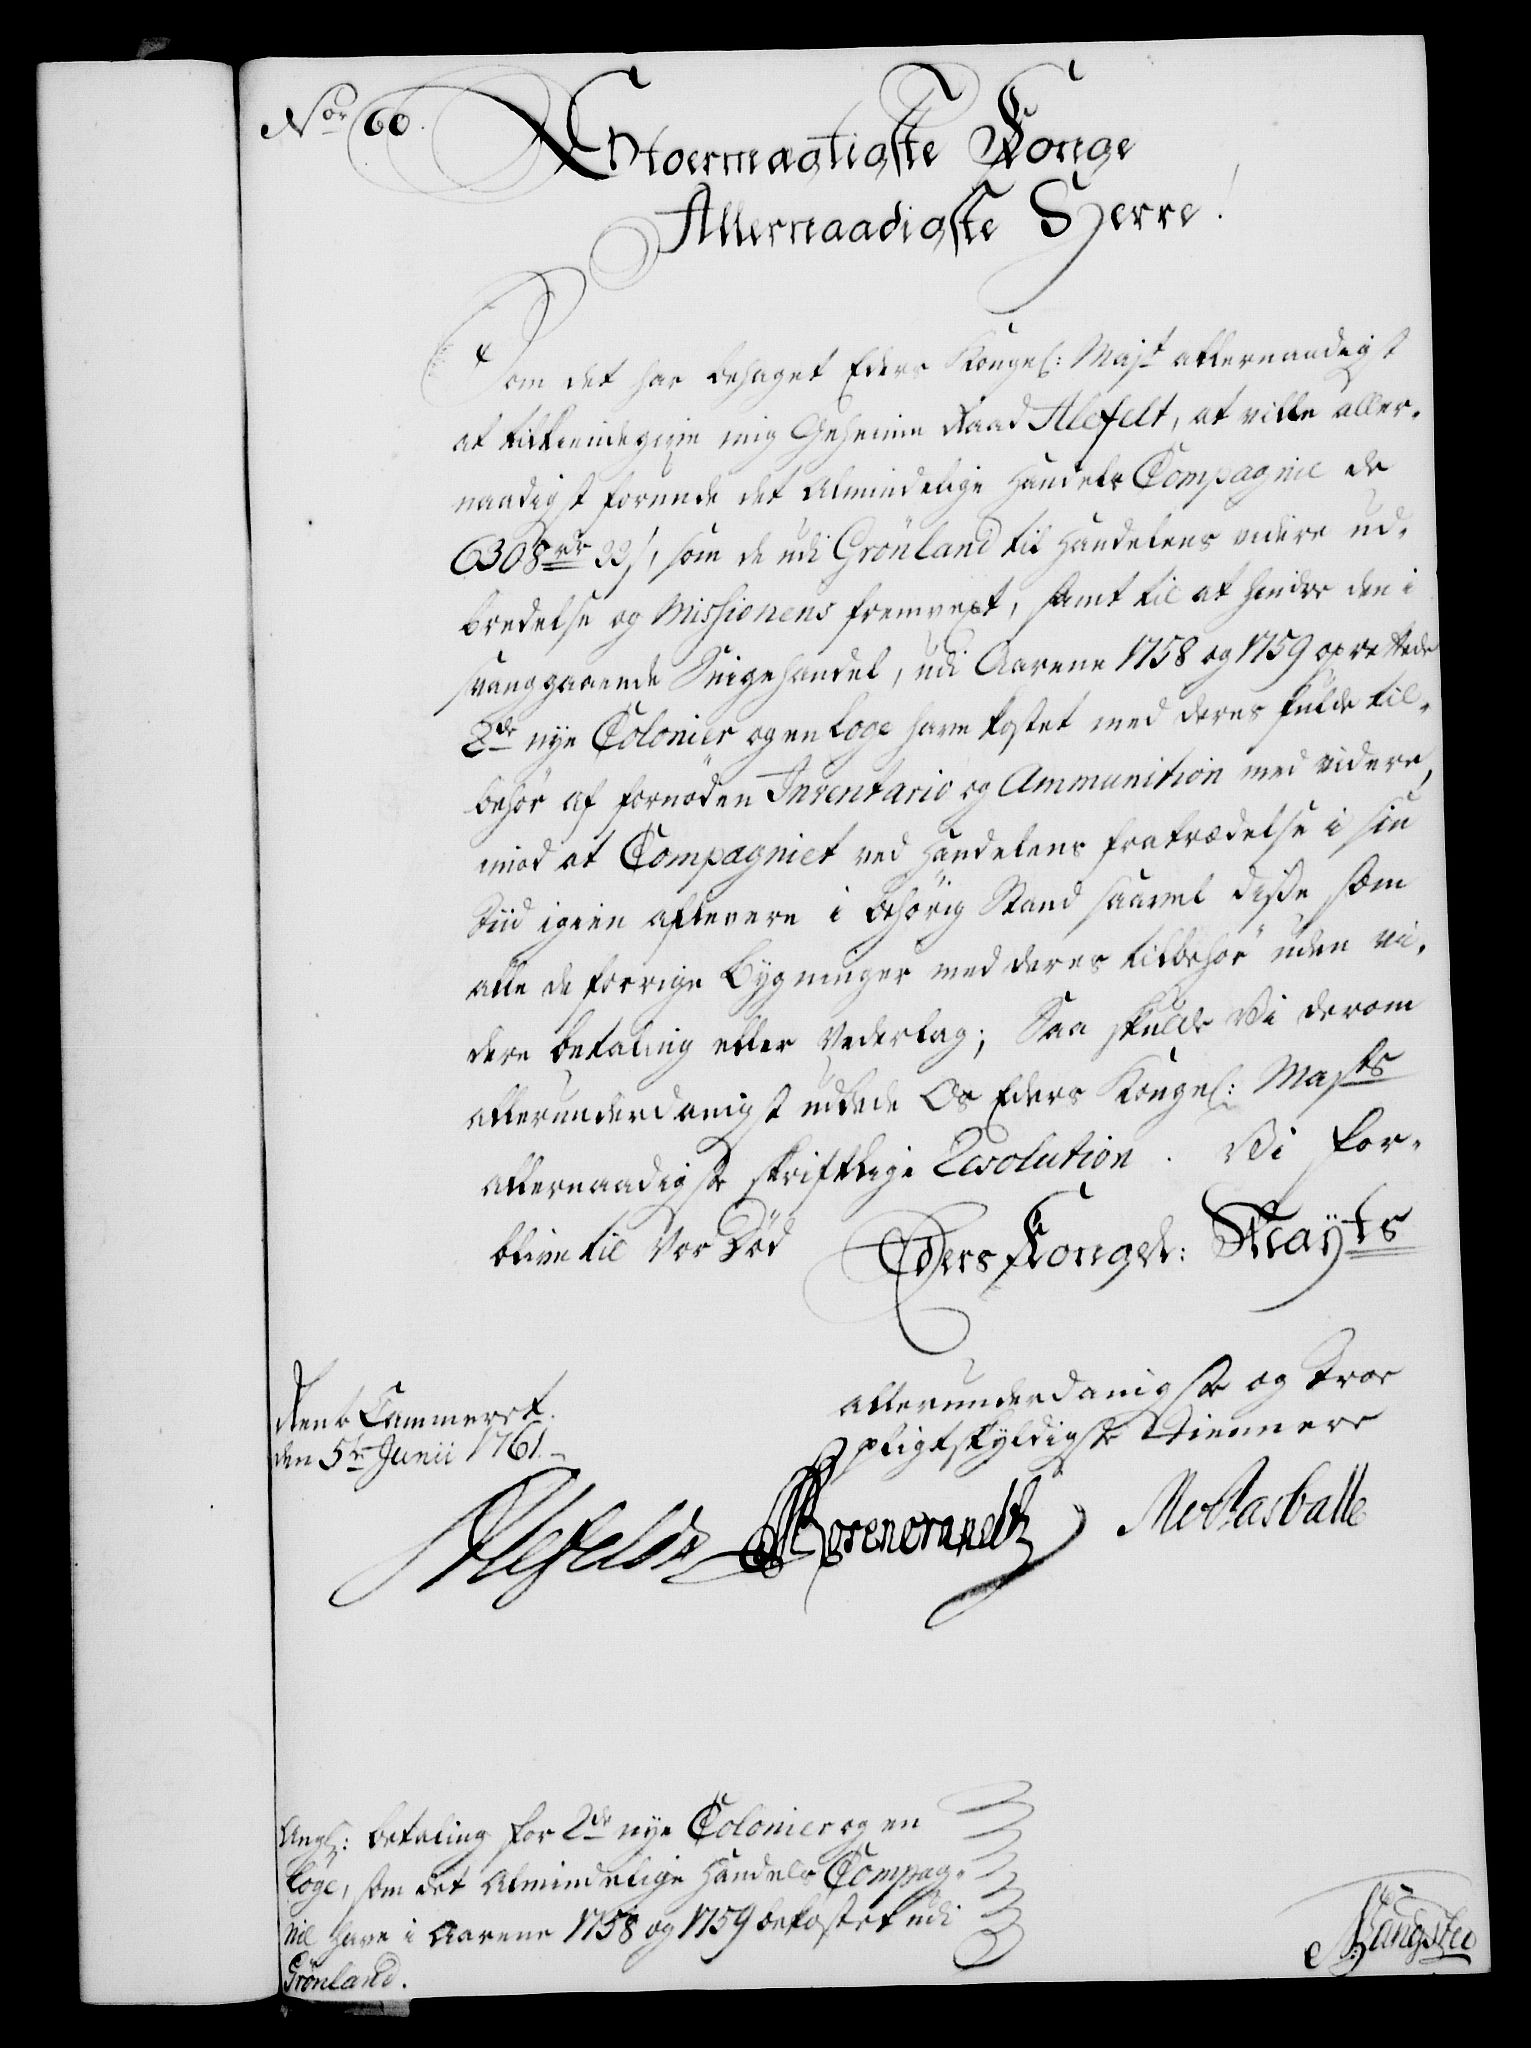 Nor 60.
Stormægtigste Konge
Allernaadigste Herre!
Som det har behaget Eders Kongel: Majt allernaadigst
at tilkiendegive mig Geheime Raad Alefelt, at ville aller-
naadigst forunde det Almindelige Handels Compagnie de
6308 rdr 22 s, som de udi Grønland til Handelens videre ud-
bredelse og Missionens fremvext, samt til at hindre den i
svang gaaende Snigehandel, udi Aarene 1758 og 1759 oprettede
2de nye Colonier og en Loge have kostet med deres fulde til-
behør af fornøden Inventario og Ammunition med videre,
imod at Compagniet ved Handelens fratrædelse i sin
Tiid igien aflevere i behørig Stand saavel disse som
alle de forrige Bygninger med deres tilbehør uden vi-
dere betaling eller Vederlag; Saa skulde Vi derom
allerunderdanigst udbede Os Eders Kongel: Majts
allernaadigste skriftlige Resolution. Vi for-
blive til Vor Død Eders Kongel: Mayts
Rente Cammeret
den 5te Junii 1761.
allerunderdanigste og troe
pligtskyldigste Tiennere
Alefeldt
Ang: betaling for 2de nye Colonier og en
Loge, som det Almindelige Handels Compag-
nie have i Aarene 1758 og 1759 bekostet udi
Grønland.